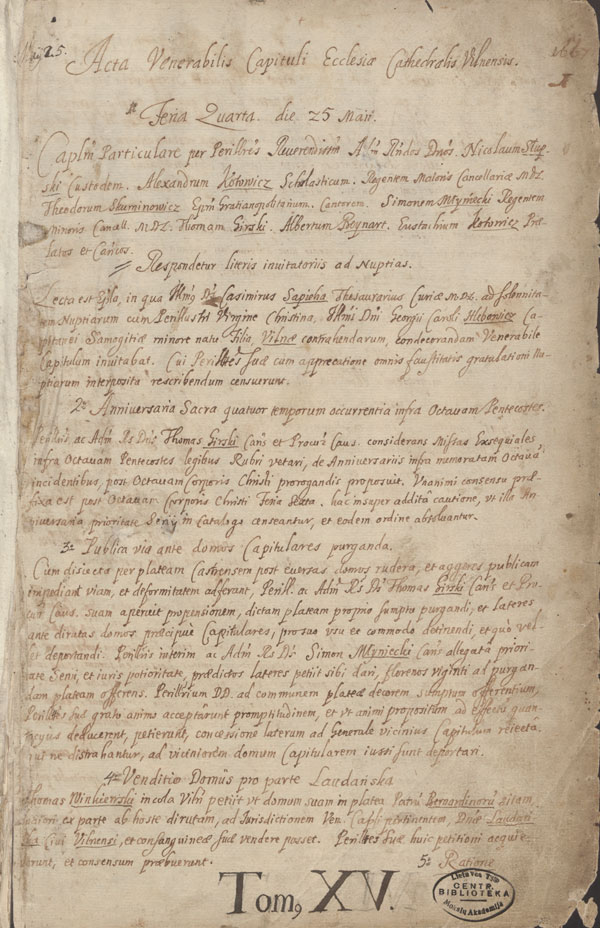 25.
Acta Venerabilis Capituli Ecclesiæ Cathedralis Vilnensis.
Feria Quarta. die 25 Maii.
Caplm Particulare per Perillres Reverendissm Adm Rndos Dnos. Nicolaum Slup
ski Custodem. Alexandrum Kotowicz Scholasticum. Regentem Maioris Cancellariæ M.D.L.
Theodorum Skuminowicz Epm Gratianopolitanum. Cantorem. Simonem Mlyniecki Regentem
minoris Cancell. M.D.L. Thomam Girski. Albertum Beynart. Eustachium Kotowicz Præ
latos et Can̄cos.
Respondetur literis invitatoriis ad Nuptias.
Lecta est Epla, in qua Illmg Ds Casimirus Sapieha Thesaurarius Curiæ M.D.L. ad solennita
tem Nuptiarum cum Perillustri Virgine Christina, Illmi Dni Georgii Caroli Hlebowicz Ca
pitanei Samogitiæ minore natu Filia, Vilnæ contrahendarum, condecorandam Venerabile
Capitulum invitabat. Cui Perilltes suæ cum apprecatione omnis faustitatis gratulationi Nu
ptiarum interposita rescribendum censuerunt.
2o Anniversaria Sacra quatuor temporum occurrentia infra Octavam Pentecostes.
Perillris, ac Adm Rs Dns Thomas Girski Cans et Procur Caus. considerans Missas Exsequiales,
infra Octavam Pentecostes legibus Rubri vetari, de Anniversariis infra memoratam Octava
incidentibus, post Octavam Corporis Christi prorogandis proposuit. Unanimi consensu præ
fixa est post Octavas Corporis Christi Feria Sexta. hac insuper addita cautione, ut illa An
niversaria prioritate Senij in Catalogo censeantur, et eodem ordine absolvantur.
3o Publica via ante domos Capitulares purganda.
Cum disiecta per plateam Castrensem post eversas domos rudera, et aggeres publicam
impediant viam, et deformitatem afferant, Perill. ac Adm Rs Ds Thomas Girski Cans et Pro
cur Caus. suam aperuit propensionem, dictam plateam proprio sumptu purgandi, et lateres
ante dirutas domos præcipuè Capitulares, pro suo usu et commodo detinendi, et quò vel
let deportandi. Perillris interim ac Adm Rs Ds. Simon Mlyniecki Cans allegata priori
tate Senij, et iuris potioritate, prædictos lateres petiit sibi dari, florenos viginti ad purgan
dam plateam offerens. Perillrium DD. ad communem plateæ decorem sumptum offerentium,
Perilltes suæ grato animo acceptarunt promptitudinem, et ut animi propositum ad effectu quan
tocyus deducerent, petierunt, concessione laterum ad Generale vicinius Capitulum reiecta.
qui ne distrahantur, ad viciniorem domum Capitularem iussi sunt deportari.
4o Venditio Domûs pro parte Laudańska
Thomas Minkiewski incola Viln petiit ut domum suam in platea Patrū Bernardinorū sitam,
maiori ex parte ab hoste dirutam, ad Iurisdictionem Ven. Capli pertinentem, Dnæ Laudenti
Civi Vilnensi, et consanguineæ suæ vendere posset. Perilltes Suæ huic petitioni acquie
verunt, et consensum præbuerunt.
5o Ratione
Tom, XV.
Lietuvos TSR
CENTR.
BIBLIOTEKA
Mokslų Akademija